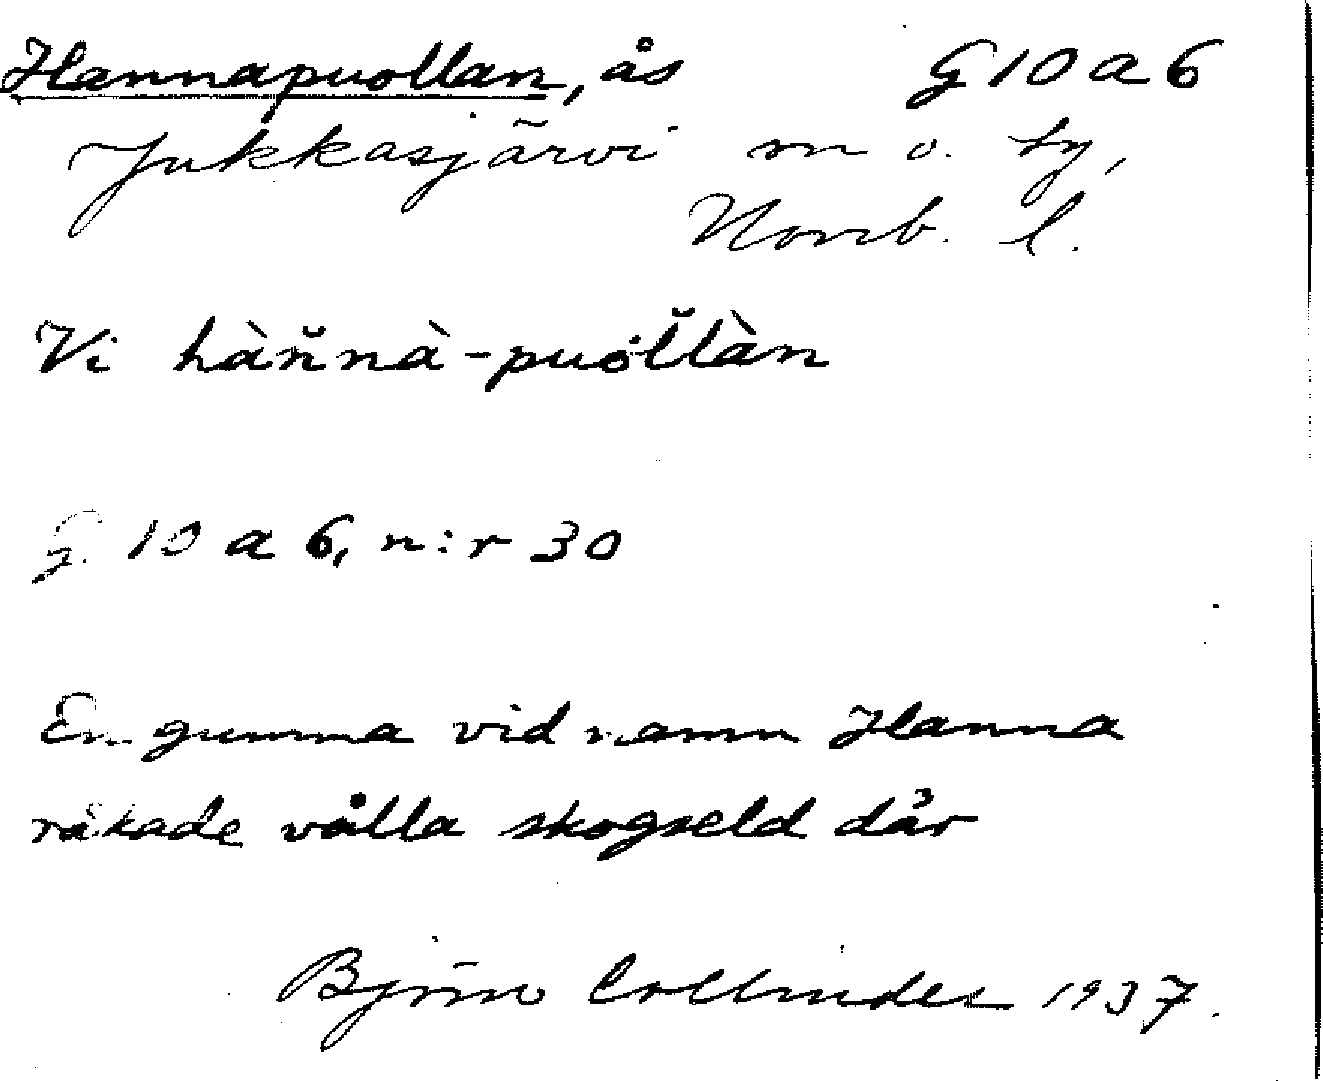 Hannapuollan, ås G 10 a 6
Jukkasjärvi sn o. by,
Norrb. l.
Vi hàn̆nà-puol̆làn
G. 10 a 6, n:r 30
En gumma vid namn Hanna
råkade vålla skogseld där
Björn Collinder 1937.